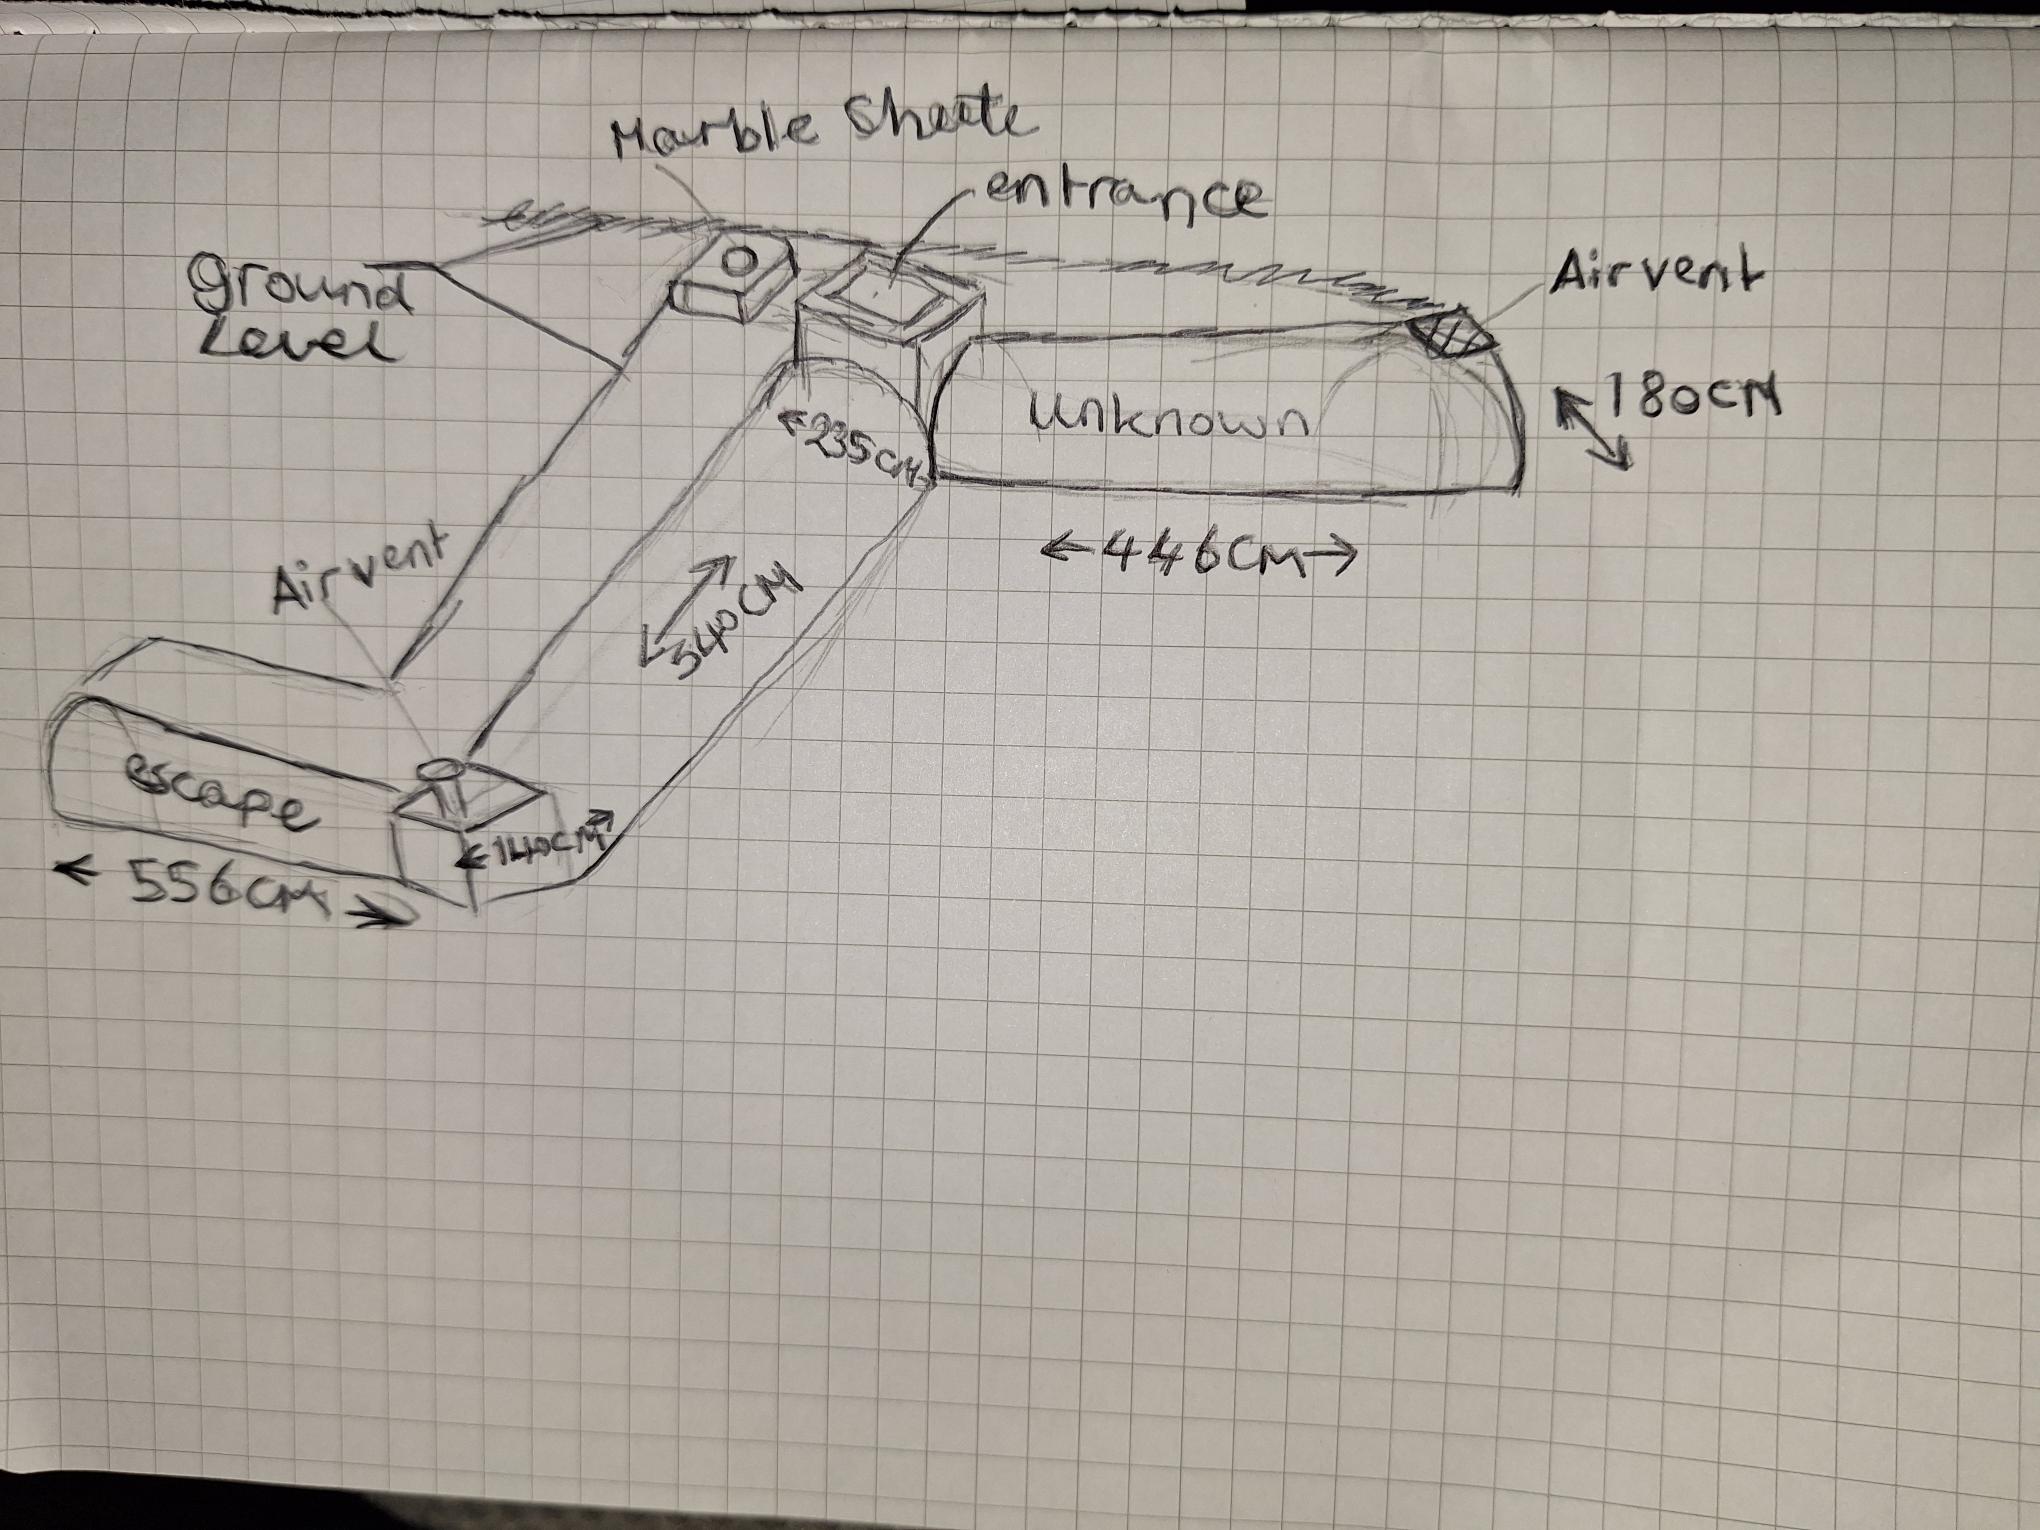 Marble Sheete
entrance
Ground
Level
Airvent
180CM
Unknown
235CM
446CM
Airvent
540CM
escape
140CM
556CM